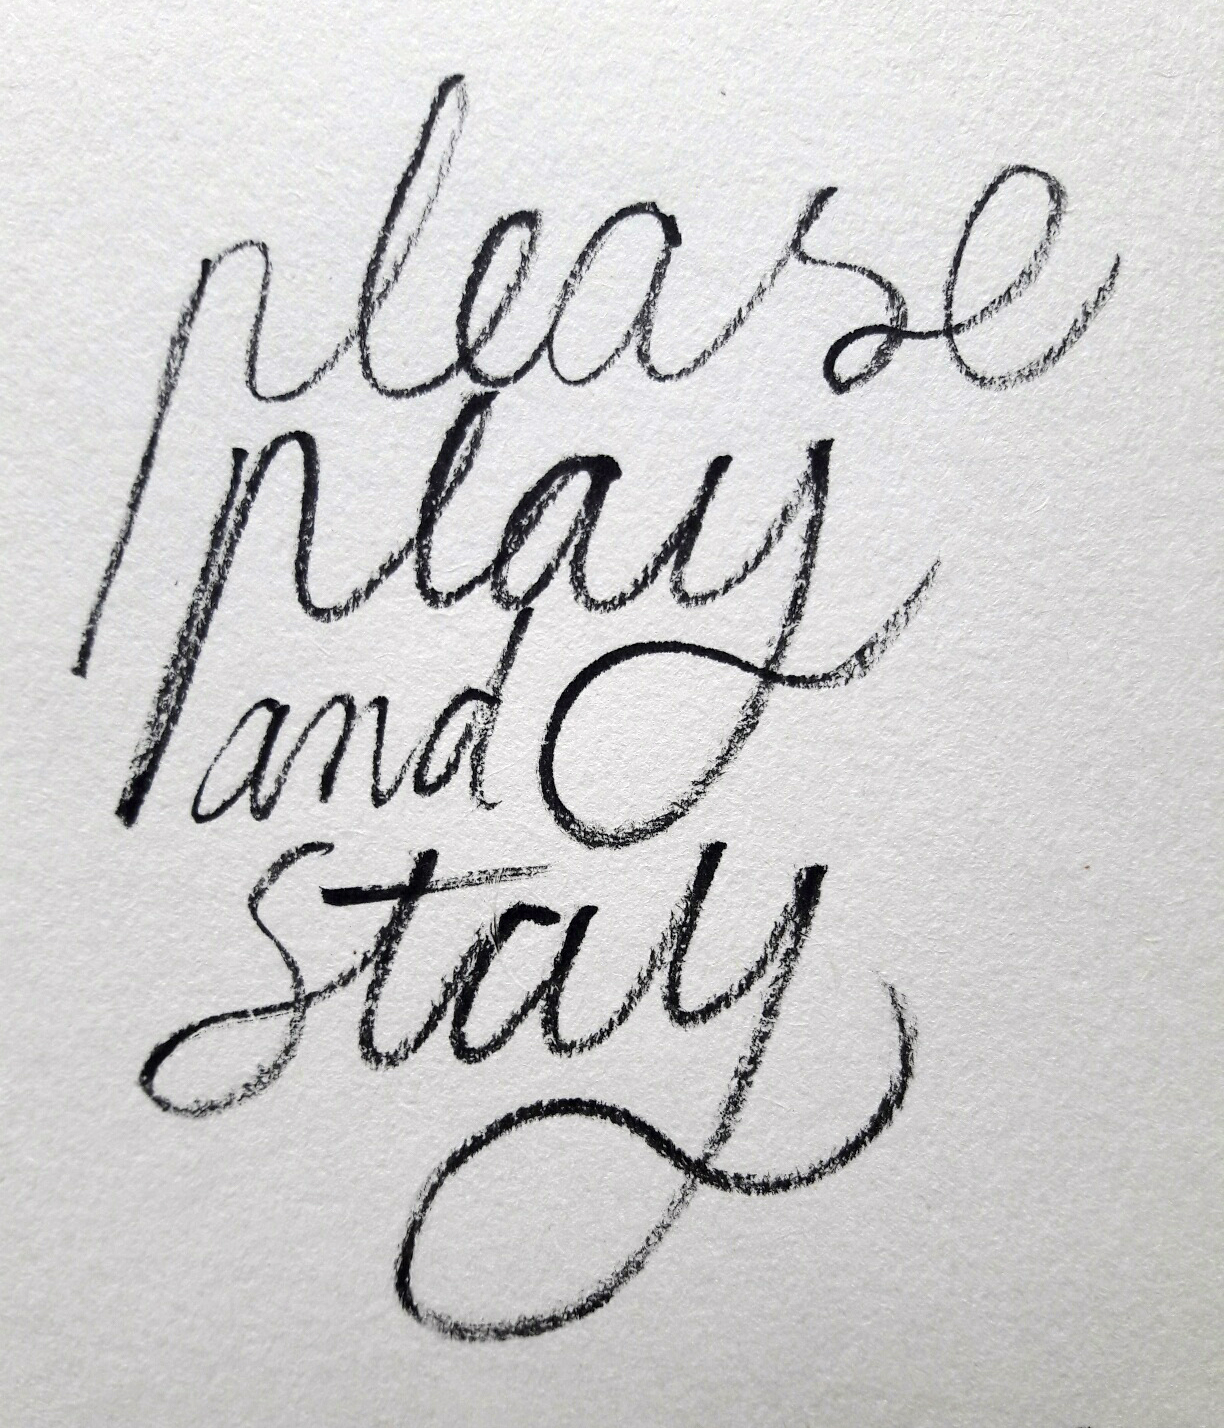 please
play
and
stay